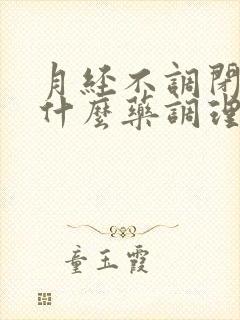 月经不調閉
什麼藥調理
童玉霞